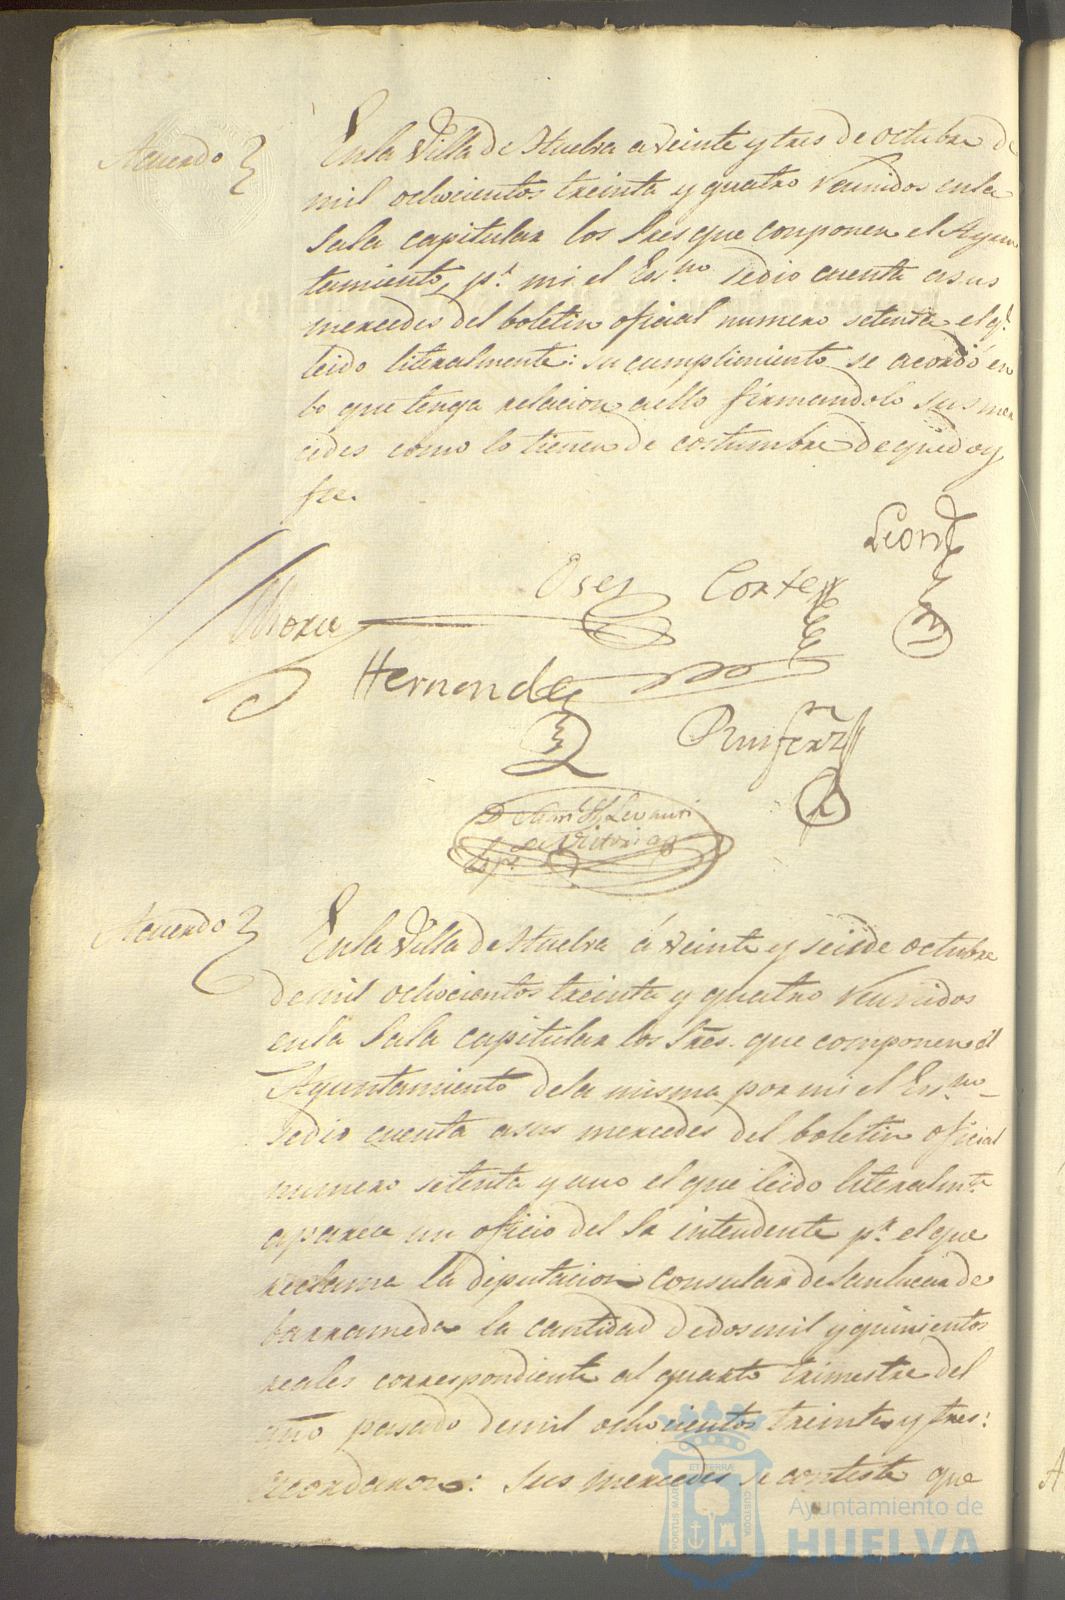 Acuerdo
En la Villa de Huelva a veinte y tres de octubre de
mil ochocientos treinta y quatro reunidos en la
Sala capitular los Sres que componen el Ayun
tamiento, pr. mi el Esno. se dio cuenta a sus
mercedes del boletin oficial numero setenta el q.
leido literalmente: su cumplimiento se acordó en
lo que tenga relacion a ello firmandolo sus mer
cedes como lo tienen de costumbre de que doy
fee.
Leon
Mora Oses Cortes
Hernandez
Ruifernz
de Victoria
Acuerdo
En la Villa de Huelva á veinte y seis de octubre
de mil ochocientos treinta y quatro reunidos
en la Sala capitular los Sres. que componen el
Ayuntamiento de la misma por mi el Esno.
se dio cuenta a sus mercedes del boletin oficial
numero setenta y uno el que leido literalmte.
aparece un oficio del Sr intendente pr. el que
reclama la diputacion consular de Sanlucar de
barrameda la cantidad de dos mil y quinientos
reales correspondiente al quarto trimestre del
año pasado de mil ochocientos treinta y tres:
acordaron: Sus mercedes se conteste que
Ayuntamiento de
HUELVA